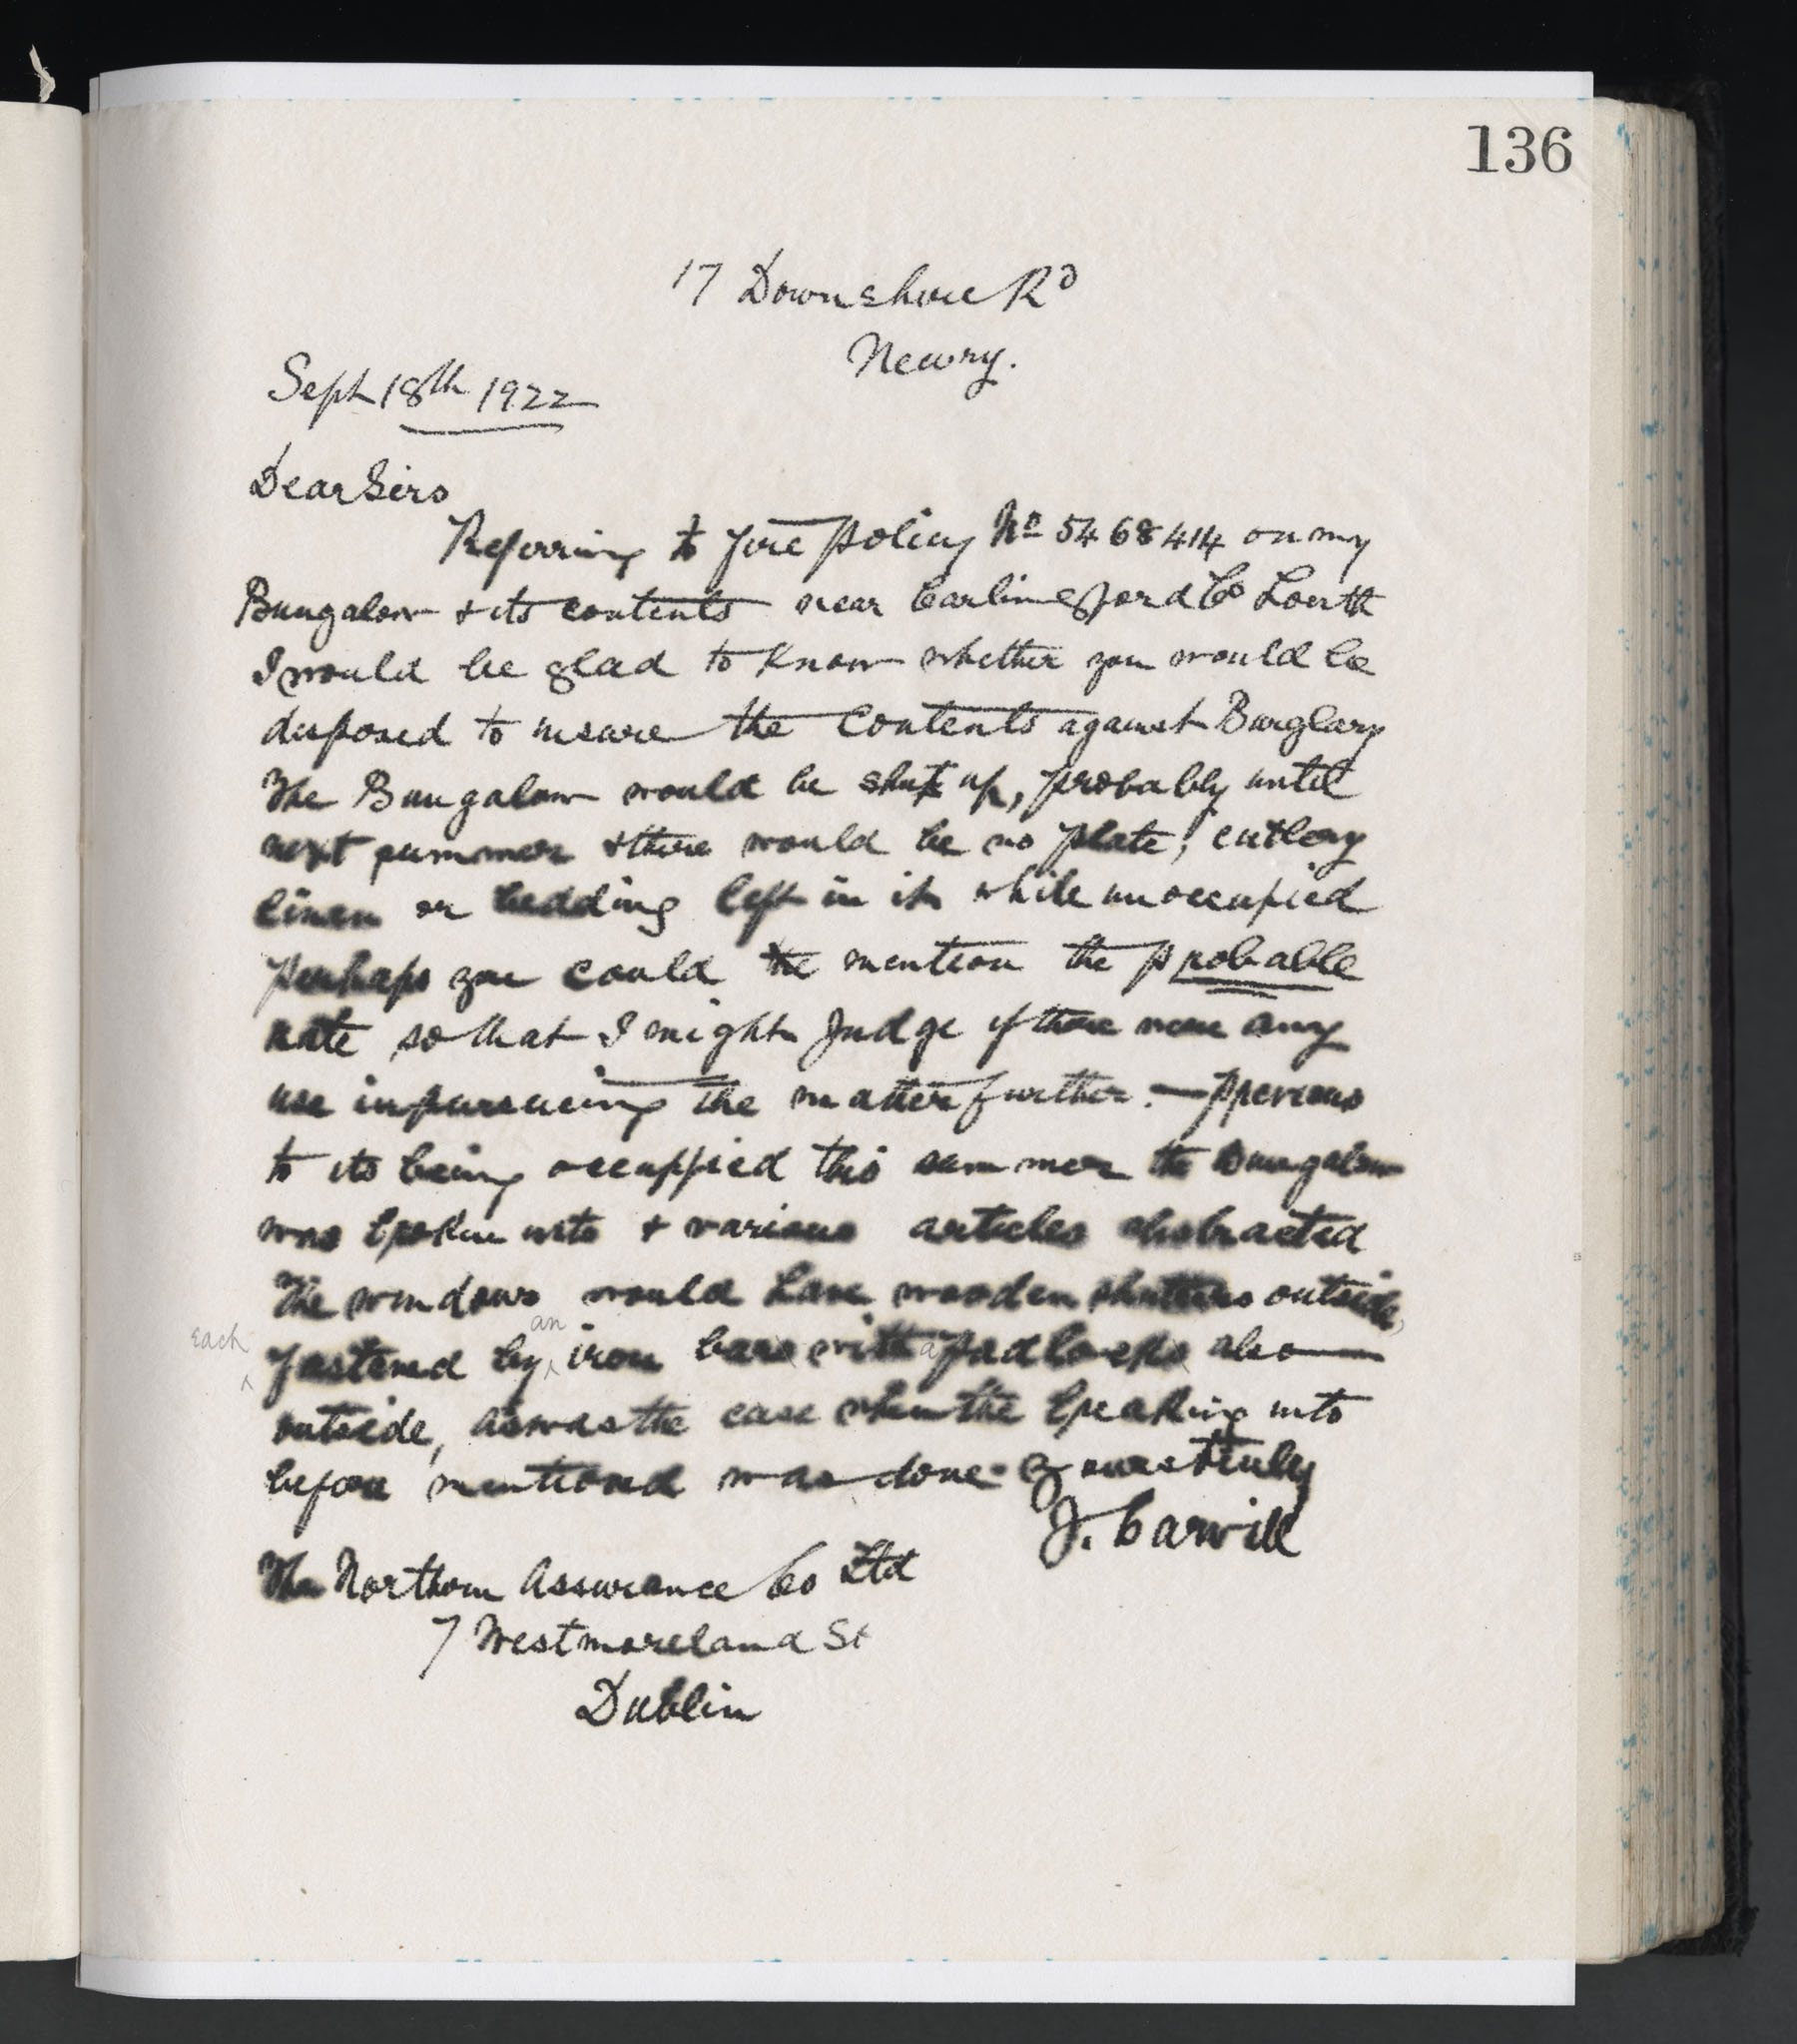 136
17 Downshire Rd
Newry.
Sept 18th 1922
Dear Sirs
Referring to fire policy No 5468414 on my
Bungalow & its contents near Carlingford Co Louth
I would be glad to know whether you would be
disposed to insure the Contents against Burglary
The Bungalow would be shut up, probably until
next summer & there would be no plate, cutlery
linen or bedding left in it while unoccupied
perhaps you could the mention the probable
rate so that I might Judge if there were any
use in pursueing the matter further. — previous
to its being occuppied this summer the Bungalow
was broken into & various articles abstracted
The windows would have wooden shutters outside,
each fastened by an iron bars with a padlocks also
outside, as was the case when the breaking into
before mentioned was done. Yours truly
J. Carvill
The Northern Assurance Co Ltd
7 Westmoreland St
Dublin